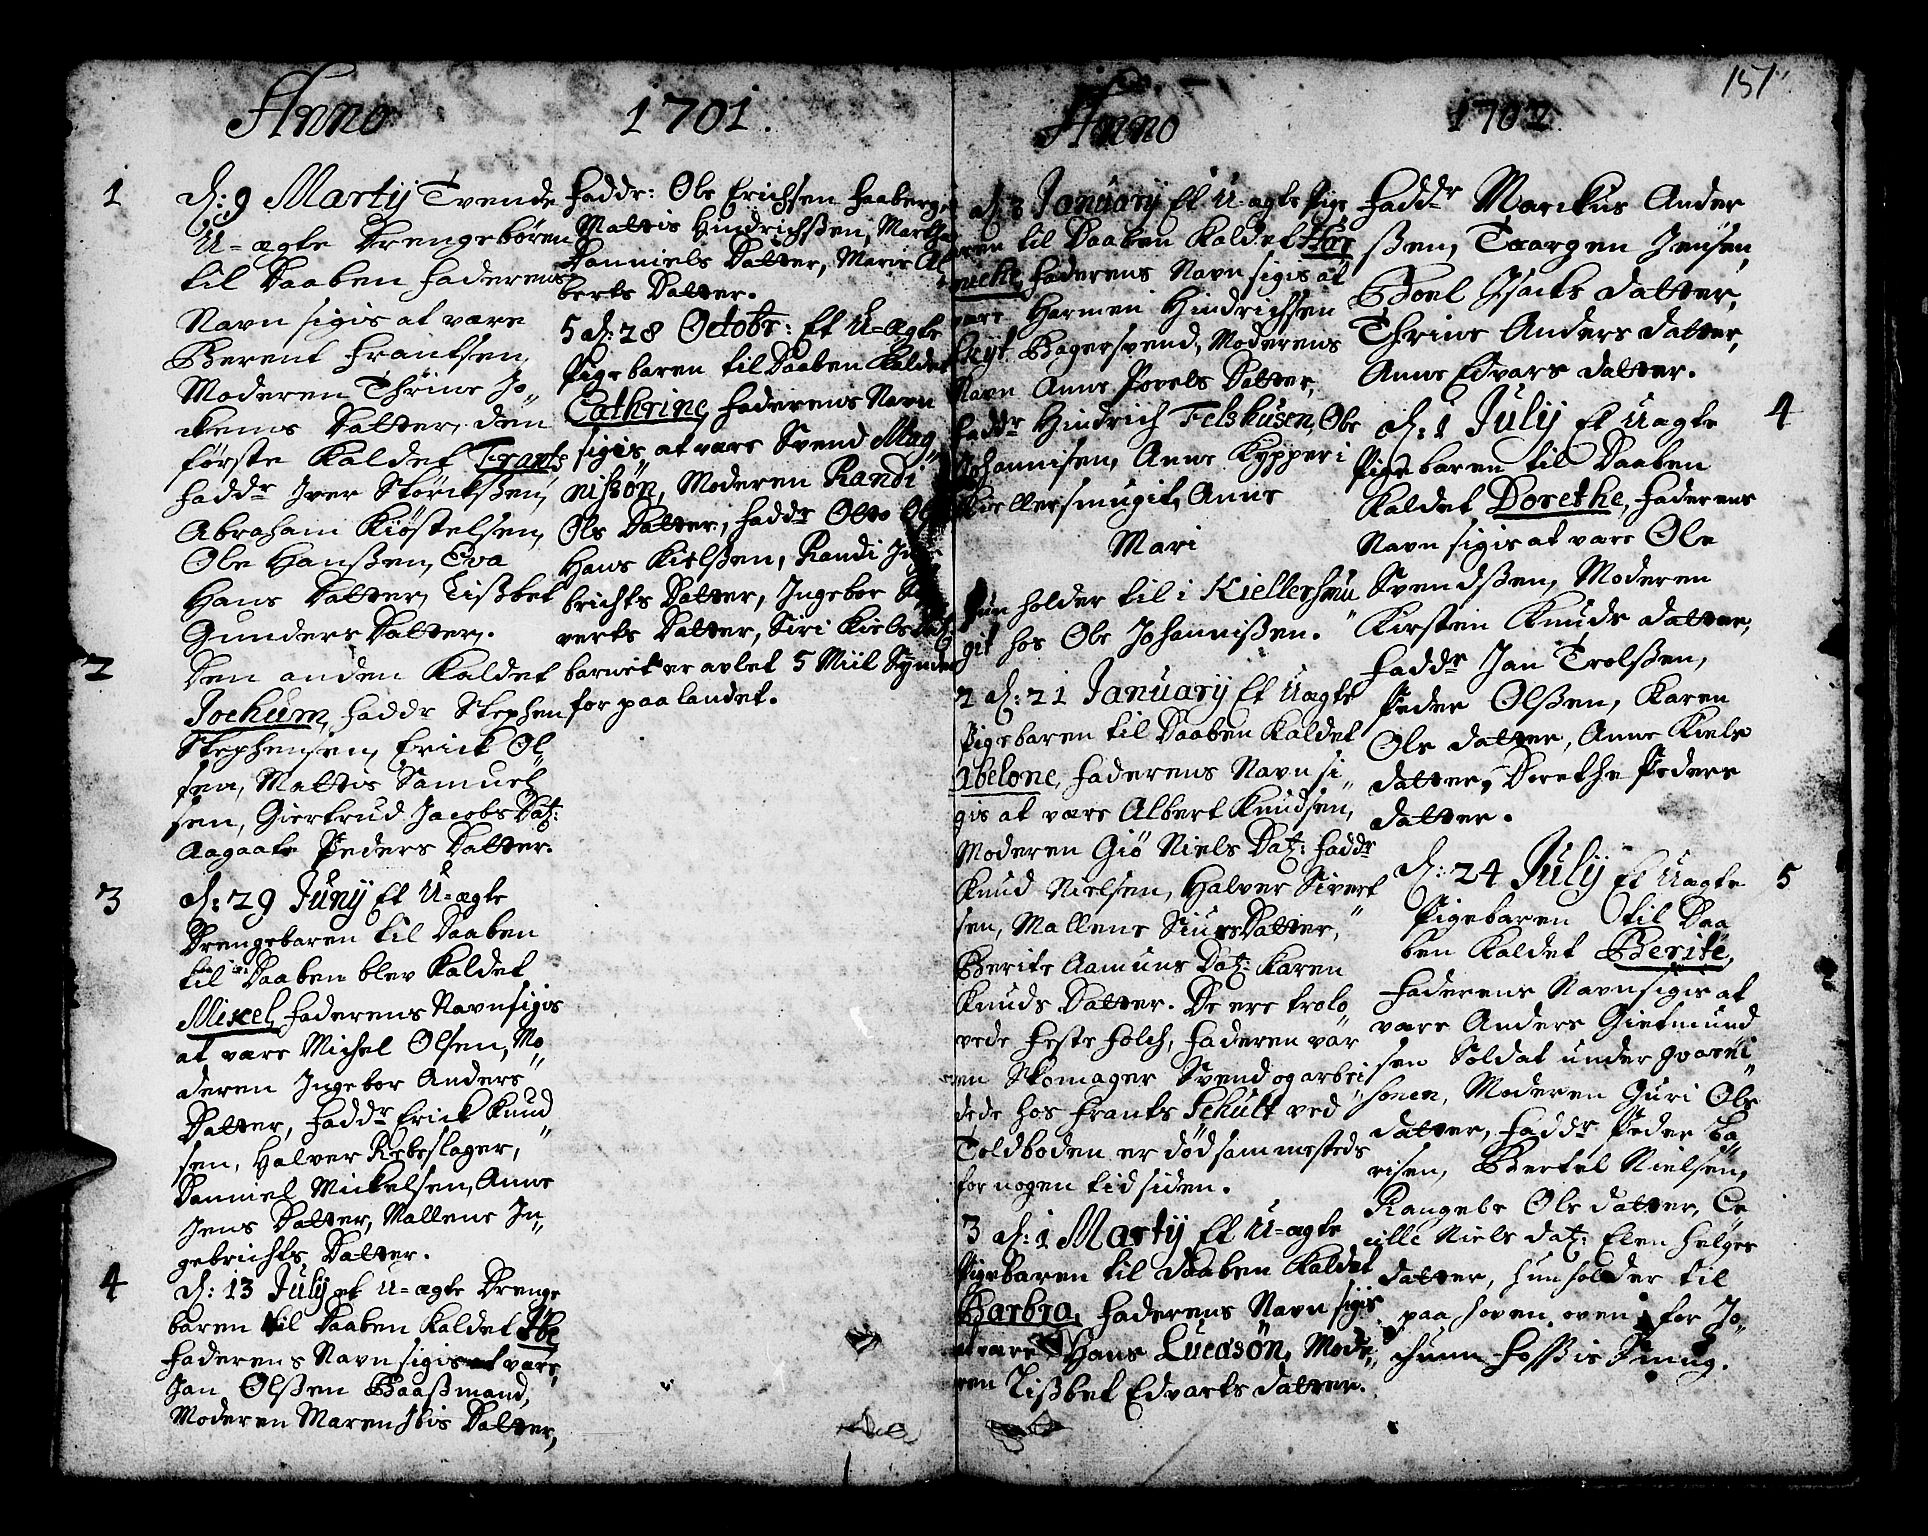 Anno 1701.
1
d: 9 Martij Tvende
U-ægte Drengebören
til Daaben Faderens
Navn sigis at være
Berent Frantsen,
Moderen Thrine Jo„
ckems Datter, den
förste Kaldet Frants
Faddr Iver Störcksßen,
Abraham Kiöstelsen,
Ole Hansßen, Eva
Hans Datter, Lisbet
Gunders Datter.
2
Den anden Kaldet
Jochum, Faddr Stephen
Stephensen, Erick Ol„
sen, Mattis Samuel„
sen, Giertrud Jacobs Dat:
Aagaate Peders Datter.
3
d: 29 Juny Et U-ægte
Drengebaren til Daaben
til Daaben blev Kaldet
Mickel, Faderens Navn sigis
at være Michel Olsen, Mo„
deren Ingebor Anders„
Datter, Faddr Erick Knud„
sen, Halver Rebeslager,
Danniel Mickelsen, Anne
Jens Datter, Mallene In„
gebrichts Datter.
4
d: 13 July et U-ægte Drenge
baren til Daaben Kaldet Ibe
Faderens Navn sigis at være
Jan Olsßen Baaßmand,
Moderen Maren Ibis Datter,
Faddr: Ole Erichsen Faaberg,
Mattis Hindrichsßen, Marthe
Danniels Datter, Marie Al„
berts Datter.
5 d: 28 Octobr: Et U-Ægte
Pige baren til Daaben Kaldet
Cathrine, Faderens Navn
sigis at være Svend Mag„
nisßön, Moderen Randi
Ols Datter, Faddr Otto
Hans Kielsßen, Randi
brichts Datter, Ingebor
verts Datter, Siri Kiels Dat:
barnet er avlet 5 Miil Synden
for paa landet.
151
Anno 1702
d: 3 January Et U-ægte Pige
baren til Daaben Kaldet
Faderens Navn sigis at
være Harmen Hindrichsen
Bagersvend, Moderens
Navn Anne Povels Datter,
Faddr Hindrich Felskusen, Ole
Johannisen, Anne Kypperi
Kiellersmugit, Anne
Mari
hun holder til i Kiellersmu„
git hos Ole Johannisßen.
2 d: 21 January Et Uægte
Pige baren til Daaben Kaldet
Abelone, Faderens Navn si„
gis at være Albert Knudsen,
Moderen Giö Niels Dat: Faddr
Knud Nielsen, Halver Sivert„
sen, Mallene Siurs Datter,
Berite Aamuns Dat: Karen
Knuds Datter. De ere trolo„
vede Feste Folch, Faderen var
en Skomager Svend og arbei„
dede hos Frants Schult ved
Toldboden er död sammesteds
for nogen tid siden.
3 d: 1 Martij Et U-ægte
Pigebaren til Daaben Kaldet
Barbra, Faderens Navn sigis
at være Hans Lucasön, Mode„
ren Lisßbet Edvarts Datter.
Faddr Marckus Ander
sßen, Taargen Jensen,
Boel Isacks Datter,
Thrine Anders Datter,
Anne Edvars Datter.
4
d: 1 July Et Uægte
Pige baren til Daaben
Kaldet Dorethe, Faderens
Navn sigis at være Ole
Svendsßen, Moderen
Kirsten Knuds Datter,
Faddr Jan Trolsßen,
Peder Olsßen, Karen
Ole Datter, Anne Kiels
Datter, Dorethe Peders
Datter.
5
d: 24 July Et Uægte
Pigebaren til Daa
ben Kaldet Berite,
Faderens Navn sigis at
være Anders Gietmund
sen Soldat under gvarni„
sonen, Moderen Guri Ols
Datter, Faddr Peder
risen, Bertel Nielsen,
Rangele Ols Datter, Ce„
cille Niels Dat: Elen Helges
Datter, hun holder til
paa Hoven oven for Jo„
chum Smug.